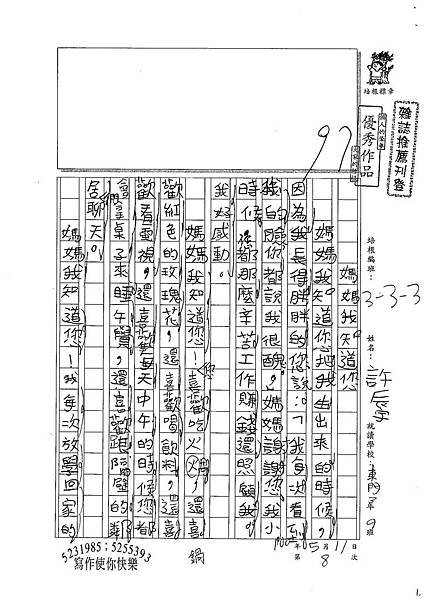 培根標章
雜誌推薦刊登
個人的榮譽
優秀作品
97
培根編班：3-3-3
姓名：許
就讀學校：東門 年9班
100年5月11日
第8次
媽媽我知道您
媽媽我知道你把我生出來的時候，
因為我長得胖胖的您說：「我每次看到
我的臉你都說我很醜。」媽媽謝謝您我小
時候您都那麼辛苦工作賺錢還照顧我。
我好感動。
媽媽我知道您！喜歡吃火鍋，還喜
歡紅色的玫瑰花，還喜歡喝飲料，還喜
歡看電視，還喜歡每天中午的時候您都
會拿桌子來睡午覺，還喜歡跑隔壁的鄰
居聊天。
媽媽我知道您！我每次放學回家的
鍋
5231985；5255393
寫作使你快樂
1